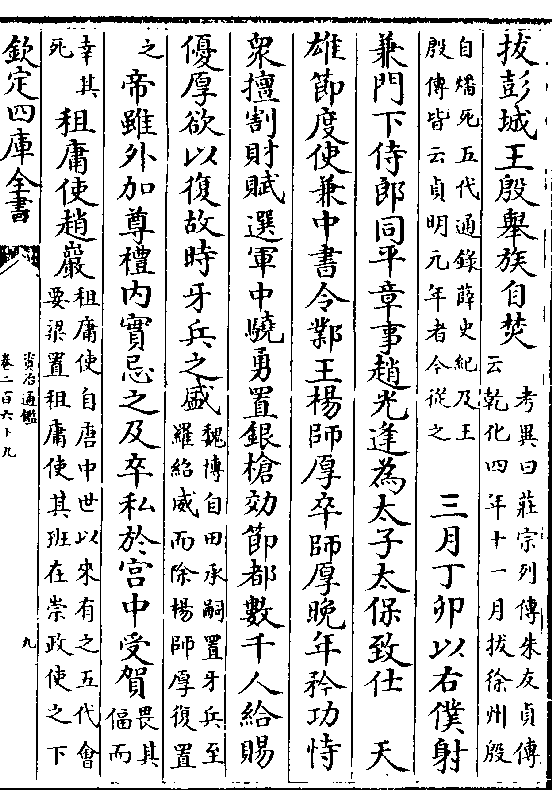 拔彭城王殷舉族自焚考異曰莊宗列傳朱友貞傳云乾化四年十一月拔徐州殷
自燔死五代通錄薛史紀及王殷傳皆云貞明元年者今從之 三月丁卯以右僕射
兼門下侍郎同平章事趙光逢為太子太保致仕 天
雄節度使兼中書令鄴王楊師厚卒師厚晚年矜功恃
衆擅割財賦選軍中驍勇置銀槍効節都數千人給賜
優厚欲以復故時牙兵之盛魏博自田承嗣置牙兵至羅紹威而除楊師厚復置
之帝雖外加尊禮内實忌之及卒私於宮中受賀畏其偪而
幸其死租庸使趙巖租庸使自唐中世以來有之五代會要梁置租庸使其班在崇政使之下
欽定四庫全書
資治通鑑
卷二百六十九
九